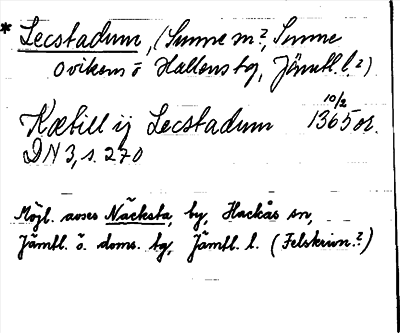 * Lecstadum, (Sunne sn?, Sunne
Ovikens o Hallens tg, Jämtl. l.?)
Kætill ij Lecstadum 10/2 1365 or.
DN 3, s. 270
Möjl. avses Näcksta, by, Hackås sn,
Jämtl. ö. doms. tg, Jämtl. l. (Felskrivn.?)